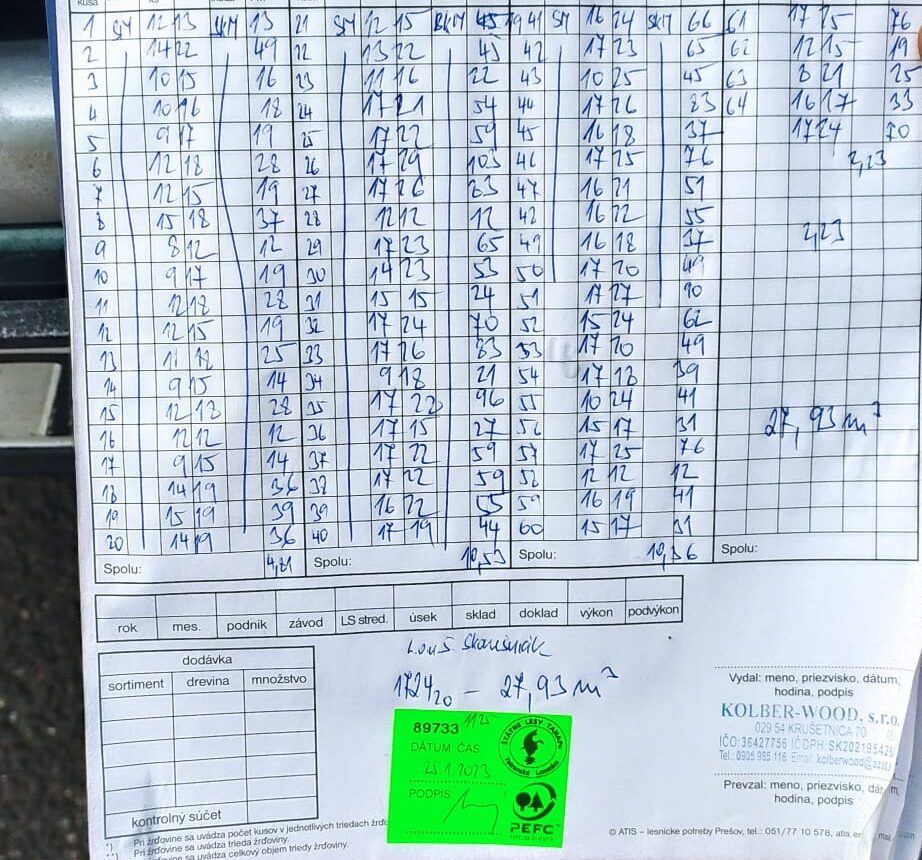 kusa ks
1 SM 12 13 SKM 13 21 SM 12 15 SKM 19 41 SM 16 24 SKM 66 61 17 25 76
2 14 22 49 22 13 22 45 42 17 23 65 62 12 15 19
3 10 15 16 23 11 16 22 43 10 25 45 63 8 21 25
4 10 16 18 24 17 21 54 44 17 26 83 64 16 17 33
5 9 17 19 25 17 22 59 45 16 18 37 17 24 70
6 12 18 28 26 17 29 103 46 17 25 76 2,23
7 12 15 19 27 17 26 83 47 16 21 51
8 15 18 37 28 12 12 12 48 16 22 55
9 8 12 12 29 17 23 65 49 16 18 37 2,23
10 9 17 19 30 14 23 53 50 17 20 49
11 12 18 28 31 15 15 24 51 17 27 90
12 12 15 19 32 17 24 70 52 15 24 62
13 11 18 25 33 17 26 83 53 17 20 49
14 9 15 14 34 9 18 21 54 17 18 39
15 12 18 28 35 17 22 96 55 10 24 41
16 12 12 12 36 17 15 27 56 15 17 31 27,93 m³
17 9 15 14 37 17 22 59 57 17 25 76
18 14 19 36 38 17 22 59 58 12 12 12
19 15 19 39 39 16 22 55 59 16 19 41
20 14 19 36 40 17 19 44 60 15 17 31
Spolu: 4,81 Spolu: 10,53 Spolu: 10,36 Spolu:
rok mes. podnik závod LS stred. úsek sklad doklad výkon podvýkon
dodávka
sortiment drevina množstvo
kontrolný súčet
172420 – 27,93 m³
89733 1125
DÁTUM, ČAS
25.1.2023
PODPIS
ŠTÁTNE LESY TANAPu
Tatranská Lomnica
PEFC
Vydal: meno, priezvisko, dátum,
hodina, podpis
KOLBER-WOOD, s.r.o.
029 54 KRUŠETNICA 70
IČO:36427756 IČDPH:SK202195425
Tel.: 0905 985 116 Email: kolberwood@
Prevzal: meno, priezvisko, dátum,
hodina, podpis
*) Pri žrďovine sa uvádza počet kusov v jednotlivých triedach
Pri žrďovine sa uvádza trieda žrďoviny.
Pri žrďovine sa uvádza celkový objem triedy žrďoviny.
© ATIS – lesnícke potreby Prešov, tel.: 051/77 10 578,